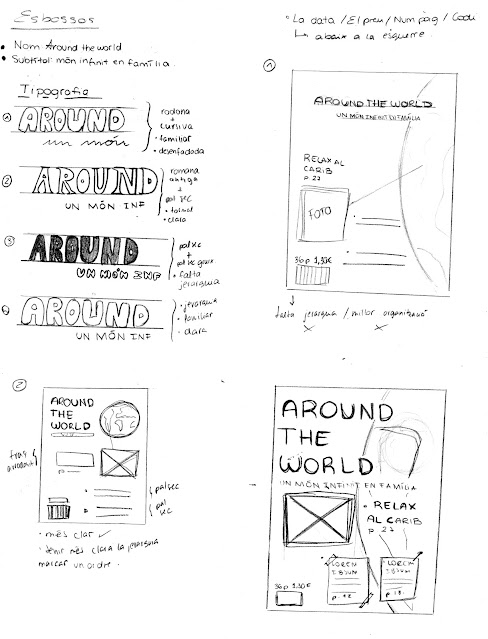 Esbossos
• Nom Around the world
• Subtítol: món infinit en família
• La data / El preu / Num pàg / Codi
↳ abaix a la esquerre.
Tipografia
①
AROUND
un món
rodona
+
cursiva
• familiar
• desenfadada
②
AROUND
UN MÓN INF
romana
antiga
+
pal sec
• formal
• clara
③
AROUND
UN MÓN INF
pal sec
+
• falta
jerarquia
AROUND
UN MÓN INF
• jerarquia
• familiar
• clara
①
AROUND THE WORLD
UN MÓN INFINIT EN FAMÍLIA
RELAX AL
CARIB
p. 27
FOTO
36p 1,30€
falta jerarquia / millor organització
②
AROUND
THE
WORLD
pal sec
pal
sec
• més clar ✓
• tenir més clara la jerarquia
marcar un ordre.
AROUND
THE
WORLD
UN MÓN INFINIT EN FAMÍLIA
• RELAX
AL CARIB
p. 27
LOREN
IPSUM
LOREN
IPSUM
36p 1,30€